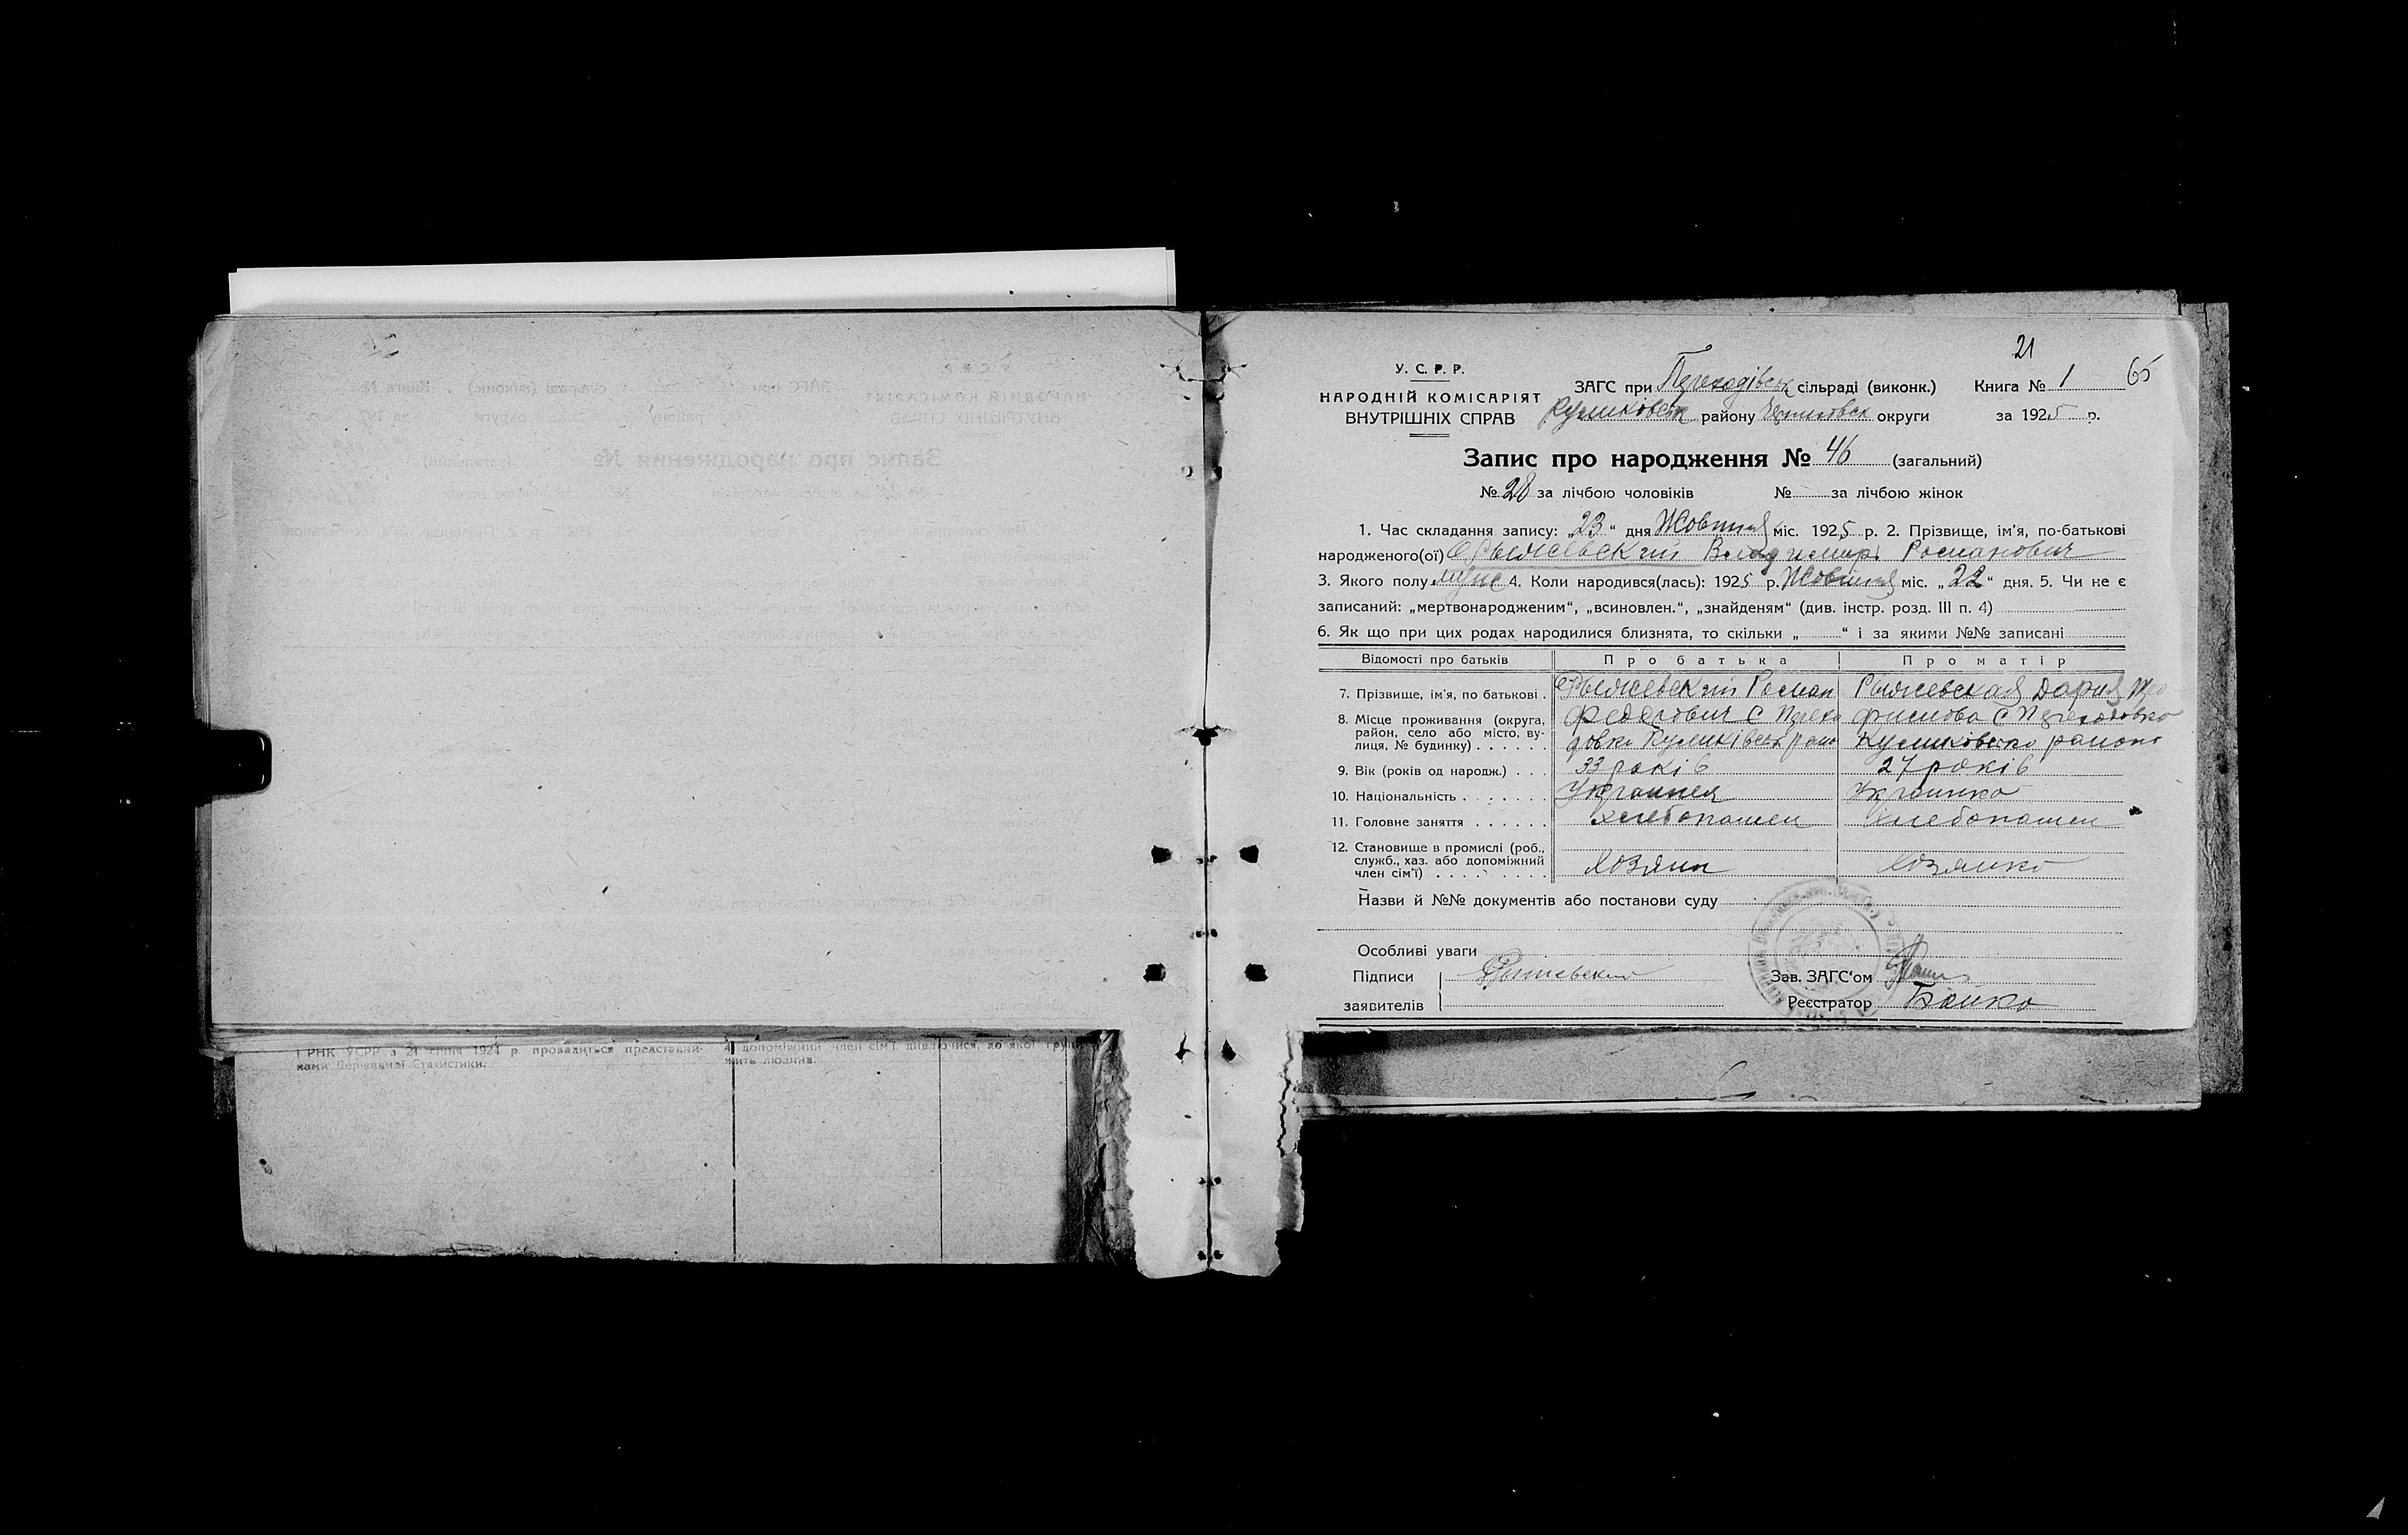 21
У. С. Р. Р.
НАРОДНІЙ КОМІСАРІЯТ
ВНУТРІШНІХ СПРАВ
ЗАГС при Переходівськ сільраді (виконк.) Книга № 1 65
Куликовськ району округи за 1925 р.
Запис про народження № 46 (загальний)
№ 28 за лічбою чоловіків № за лічбою жінок
1. Час складання запису: „23“ дня Жовтня міс. 1925 р. 2. Прізвище, ім'я, по-батькові
народженого(ої) Рыжевский Владимир Романович
3. Якого полу муж 4. Коли народився(лась): 1925 р. Жовтня міс. „22“ дня. 5. Чи не є
записаний: „мертвонародженим“, „всиновлен.“, „знайденям“ (див. інстр. розд. III п. 4)
6. Як що при цих родах народилися близнята, то скільки „ “ і за якими №№ записані
Відомості про батьків Про батька Про матір
7. Прізвище, ім'я, по батькові . Рыжевский Роман Рыжевская Дария Тро
8. Місце проживання (округа, Федорович с Перехо фимова с Переходовка
район, село або місто, ву-
лиця, № будинку) . . . . . . довка Куликівськ райо Куликовско района
9. Вік (років од народж.) . . . 33 років 27 років
10. Національність . . . . . . . Украинец Украинка
11. Головне заняття . . . . . . хлебопашец хлебопашец
12. Становище в промислі (роб.,
служб., хаз. або допоміжний
член сім'ї) . . . . . . . . . Хозяин Хозяйка
Назви й №№ документів або постанови суду
Особливі уваги
Підписи Рыжевский Зав. ЗАГС'ом
заявителів Реєстратор Бойко
і РНК УСРР з 21 січня 1921 р. провадиться представни-
ками Державної Статистики.
допоміжний член сім'ї, дивлючися, до якої групи
жить людина.